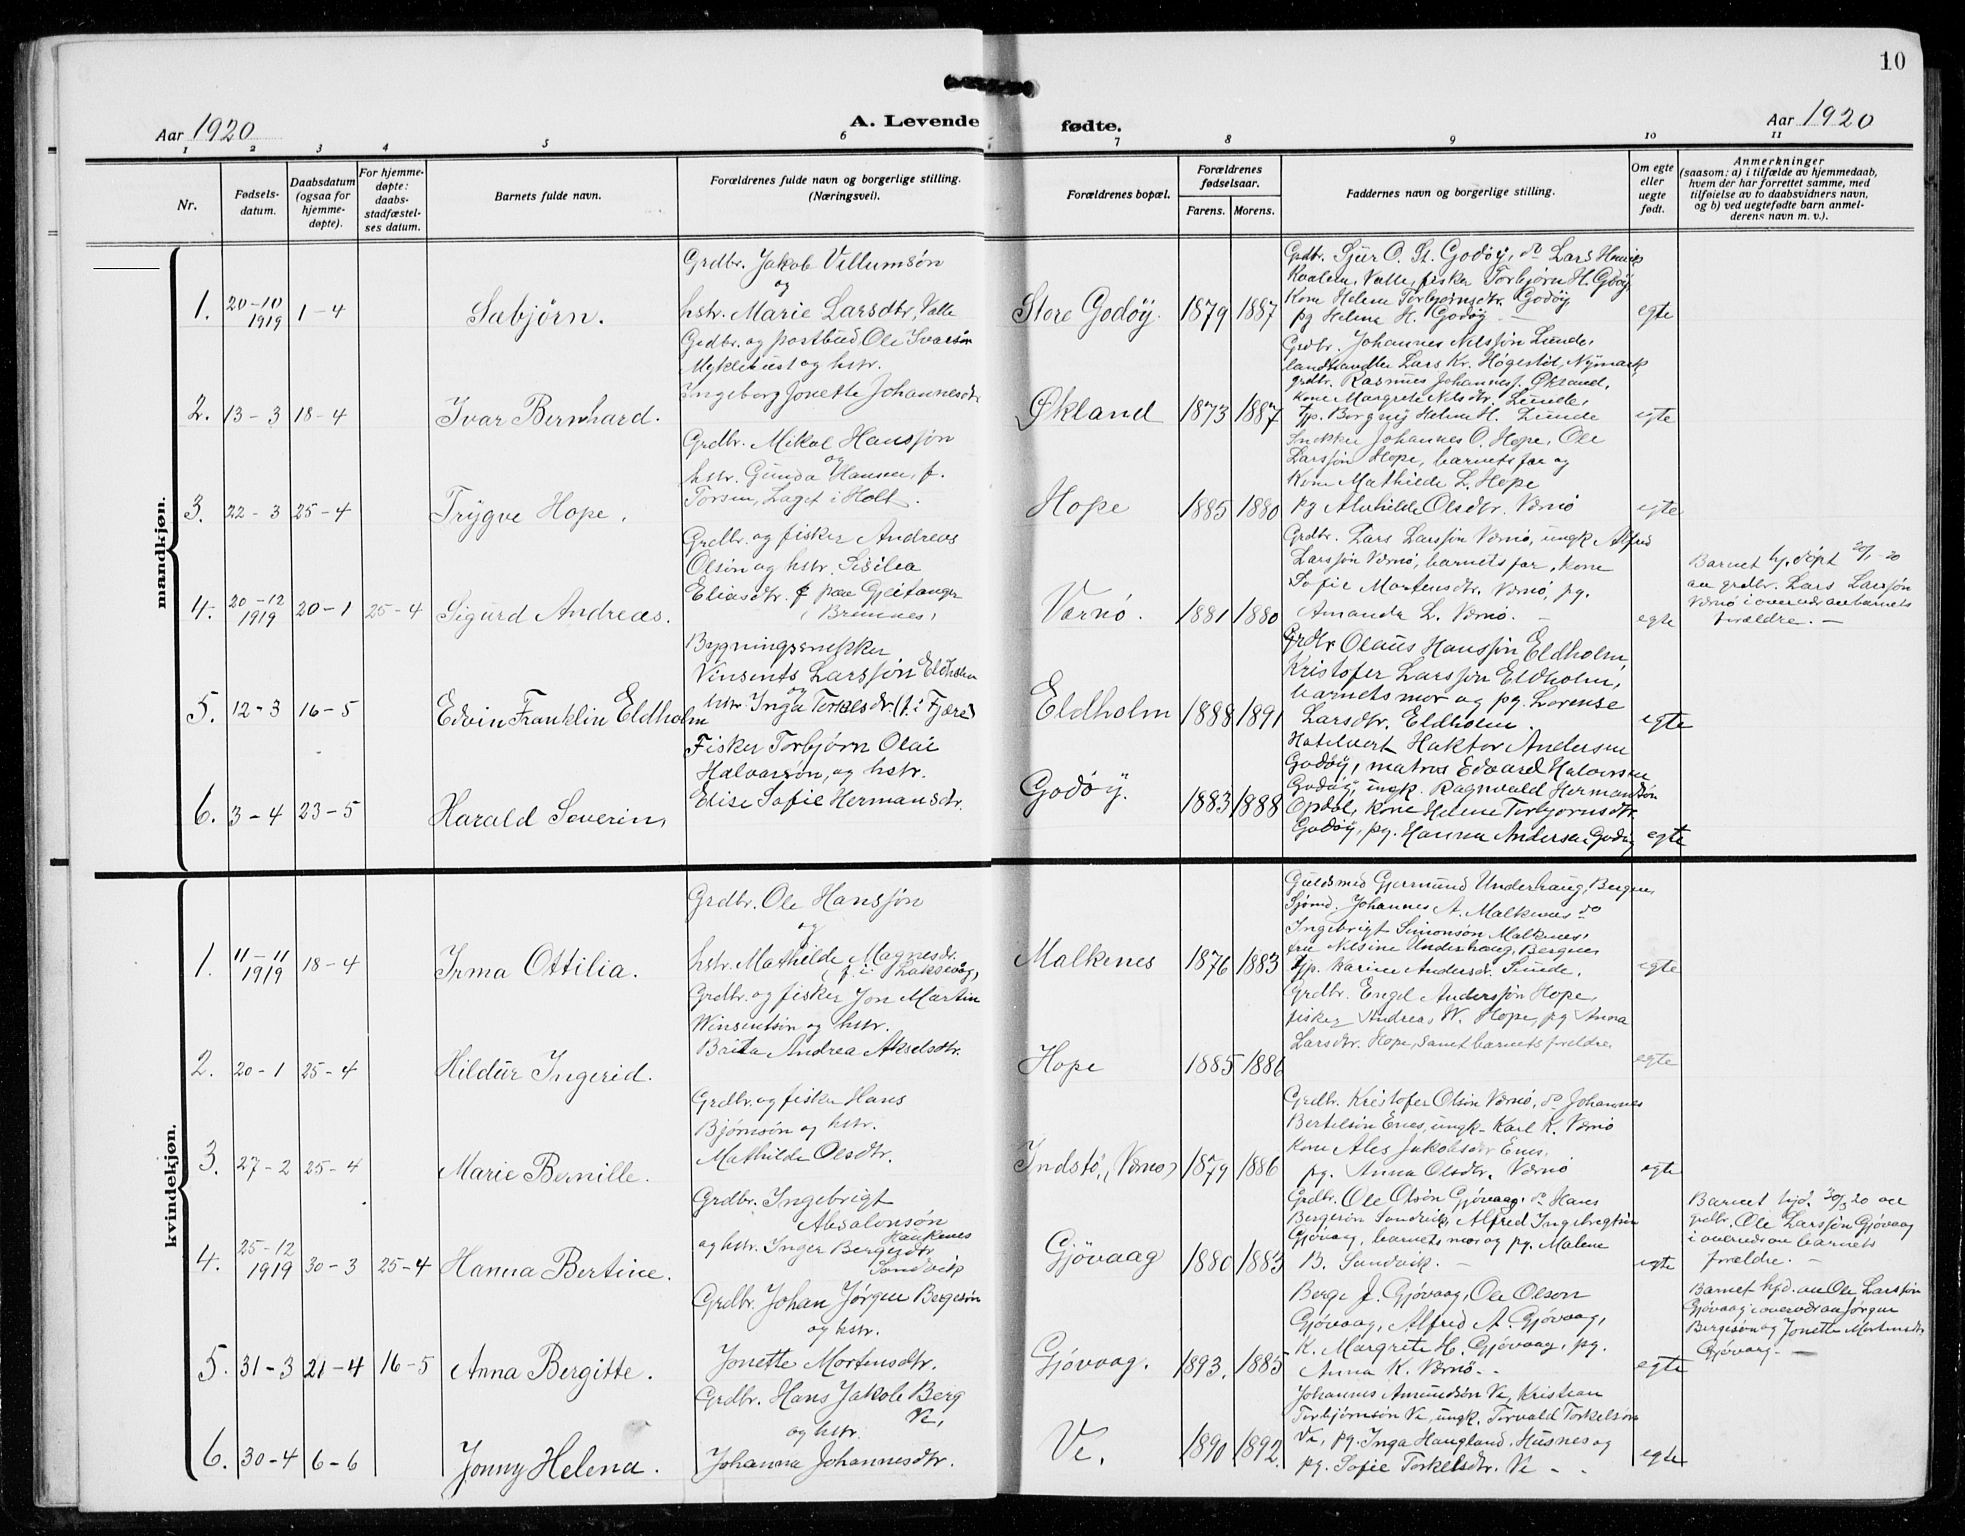 10
Aar 1920
A. Levende fødte.
Aar 1920
1 2 3 4 5 6 7 8 9 10 11
Nr.
Fødsels-
datum.
Daabsdatum
(ogsaa for
hjemme-
døpte).
For hjemme-
døpte:
daabs-
stadfæstel-
ses datum.
Barnets fulde navn.
Forældrenes fulde navn og borgerlige stilling.
(Næringsvei).
Forældrenes bopæl.
Forældrenes
fødselsaar.
Farens. Morens.
Faddernes navn og borgerlige stilling.
Om egte
eller
uegte
født.
Anmerkninger
(saasom: a) i tilfælde av hjemmedaab,
hvem der har forrettet samme, med
tilføielse av to daabsvidners navn,
og b) ved uegtefødte barn anmel-
derens navn m. v.).
mandkjøn.
1. 20-10 1919 1-4
Sæbjørn.
Grdbr. Jakob Villumsøn
og
hstr. Marie Larsdtr, Valle
Store Godøy. 1879 1887
Grdbr. Sjur O. St. Godøy, do Lars Henrik
Kvalem, Valle, fisker Torbjørn H. Godøy,
Kone Helene Torbjørnsdtr. Godøy
pg Helene H. Godøy
egte
2. 13-3 18-4
Ivar Bernhard.
Grdbr. og postbud Ole Ivarsøn
Myklebust og hstr.
Ingeborg Jonette Johannesdtr
Økland 1873 1887
Grdbr. Johannes Nilssøn Lunde,
landhandler Lars Kr. Høgestøl, Nymark,
grdbr. Rasmus Johanness. Økland,
kone Margrete Nilsdtr. Lunde,
tjp. Borgny Helene H. Lunde
egte
3. 22-3 25-4
Trygve Hope.
Grdbr. Mikal Hanssøn
og
hstr. Gunda Hansen, f.
Torsen, Laget i Holt.
Hope 1885 1880
Snekker Johannes O. Hope, Ole
Larssøn Hope, barnets far og
Kone Mathilde L. Hope
pg Alvhilde Olsdtr. Værnø
egte
4. 20-12 1919 20-1 25-4
Sigurd Andreas.
Grdbr. og fisker Andreas
Olsøn og hstr. Sisilea
Eliasdtr. f paa Gjeitanger
(Bremnes)
Værnø. 1881 1880
Grdbr. Lars Larssøn Værnø, ungk. Alfred
Larssøn Værnø, barnets far, kone
Sofie Mortensdtr. Værnø, pg.
Amanda L. Værnø.
egte
Barnet hj. døpt 20/1-20
av grdbr. Lars Larssøn
Værnø i overvær av barnets
forældre.
5. 12-3 16-5
Edvin Franklin Eldholm
Bygningssnekker
Vinsents Larssøn Eldholm
og
hstr. Inga Terkesdtr (f. i Fjære)
Eldholm 1888 1891
Grdbr Olaus Hanssøn Eldholm,
Kristofer Larssøn Eldholm,
barnets mor og pg. Lorense
Larsdtr. Eldholm.
egte
6. 3-4 23-5
Harald Severin,
Fisker Torbjørn Olai
Halvarsøn, og hstr.
Elise Sofie Hermansdtr.
Godøy. 1883 1888
Hotelvert Haktor Andersen
Godøy, matros Edvard Halvorsen
Godøy, ungk. Ragnvald Hermansøn
Opdal, kone Helene Torbjørnsdtr.
Godøy, pg. Hanna Andersen Godøy
egte
kvindekjøn.
1. 11-11 1919 18-4
Irma Ottilia.
Grdbr. Ole Hanssøn
og
hstr. Mathilde Magnesdtr.
(f. i Laksevåg)
Malkenes 1876 1883
Guldsmed Gjermund Underhaug, Bergen,
Sjømd. Johannes A. Malkenes do
Ingebrigt Simonsøn Malkenes,
fru Nilsine Underhaug, Bergen
tjp. Karine Andersdtr. Sunde.
egte
2. 20-1 25-4
Hildur Ingerid.
Grdbr. og fisker Jon Martin
Winsentsøn og hstr.
Andrea Akselsdtr.
Hope 1885 1886
Grdbr. Engel Anderssøn Hope,
fisker Andreas W. Hope, pg Anna
Larsdtr. Hope, samt barnets foreldre
egte
3. 27-2 25-4
Marie Bernille.
Grdbr. og fisker Hans
Bjørnsøn og hstr.
Mathilde Olsdtr.
Indstø, (Værnø) 1879 1886
Grdbr. Kristofer Olsøn Værnø, do Johannes
Bertelsøn Enes, ungk. Karl K. Værnø
kone Ales Jakobsdtr Enes,
pg. Anna Olsdtr. Værnø
egte
4. 25-12 1919 30-3 25-4
Hanna Bertine.
Grdbr. Ingebrigt
Absalonsøn
Haukenes
og hstr. Inger Bergesdtr
Sandvik
Gjøvaag 1880 1883
Grdbr. Ole Olsøn Gjøvaag, do Hans
Bergesøn Sandvik, Alfred Ingebrigtsøn
Gjøvaag, barnets mor og pg. Malene
B. Sandvik.
egte
Barnet hjd. 30/3 20 av
grdbr. Ole Larssøn Gjøvaag
i overvær av barnets
forældre.
5. 31-3 21-4 16-5
Anna Bergitte.
Grdbr. Johan Jørgen Bergesøn
og hstr.
Jonette Mortensdtr.
Gjøvaag. 1893. 1885
Berge J. Gjøvaag, Ole Olson
Gjøvaag, Alfred A. Gjøvaag,
K. Margrete H. Gjøvaag, pg.
Anna K. Værnø.
egte
Barnet hjd. av Ole Larssøn
Gjøvaag i overvær av Jørgen
Bergesøn og Jonette Mortensdtr
Gjøvaag.
6. 30-4 6-6
Jonny Helena.
Grdbr. Hans Jakob Berg
Ve,
og hstr.
Johanna Johannesdtr.
Ve. 1890 1892.
Johannes Amundsøn Ve, Kristian
Torbjørnsøn Ve, ungk. Torvald Torkelsøn
Ve, pg. Inga Haugland, Husnes og
pg. Sofie Torkelsdtr. Ve
egte